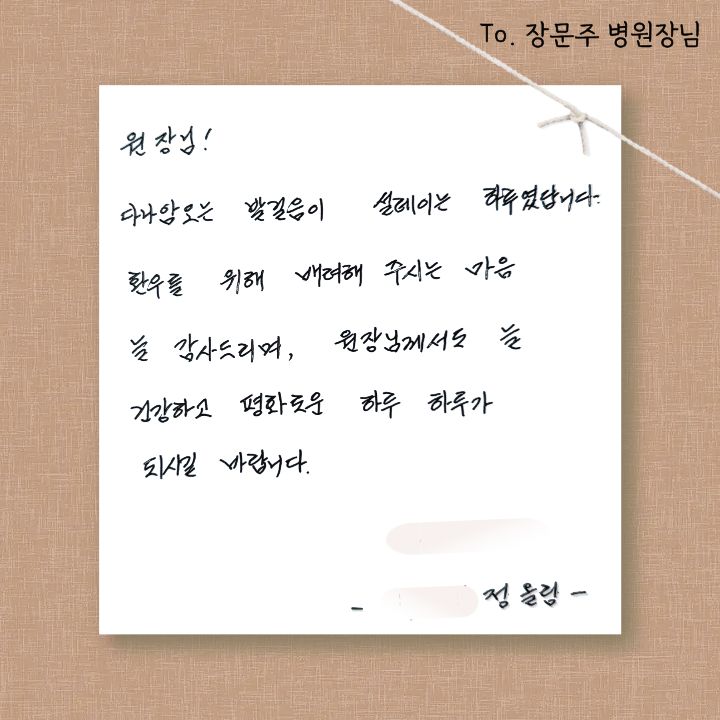 To. 장문주 병원장님
원장님!
다나암오는 발걸음이 설레이는 하루였답니다.
환우를 위해 배려해 주시는 마음
늘 감사드리며, 원장님께서도 늘
건강하고 평화로운 하루 하루가
되시길 바랍니다.
- 정 올림 -